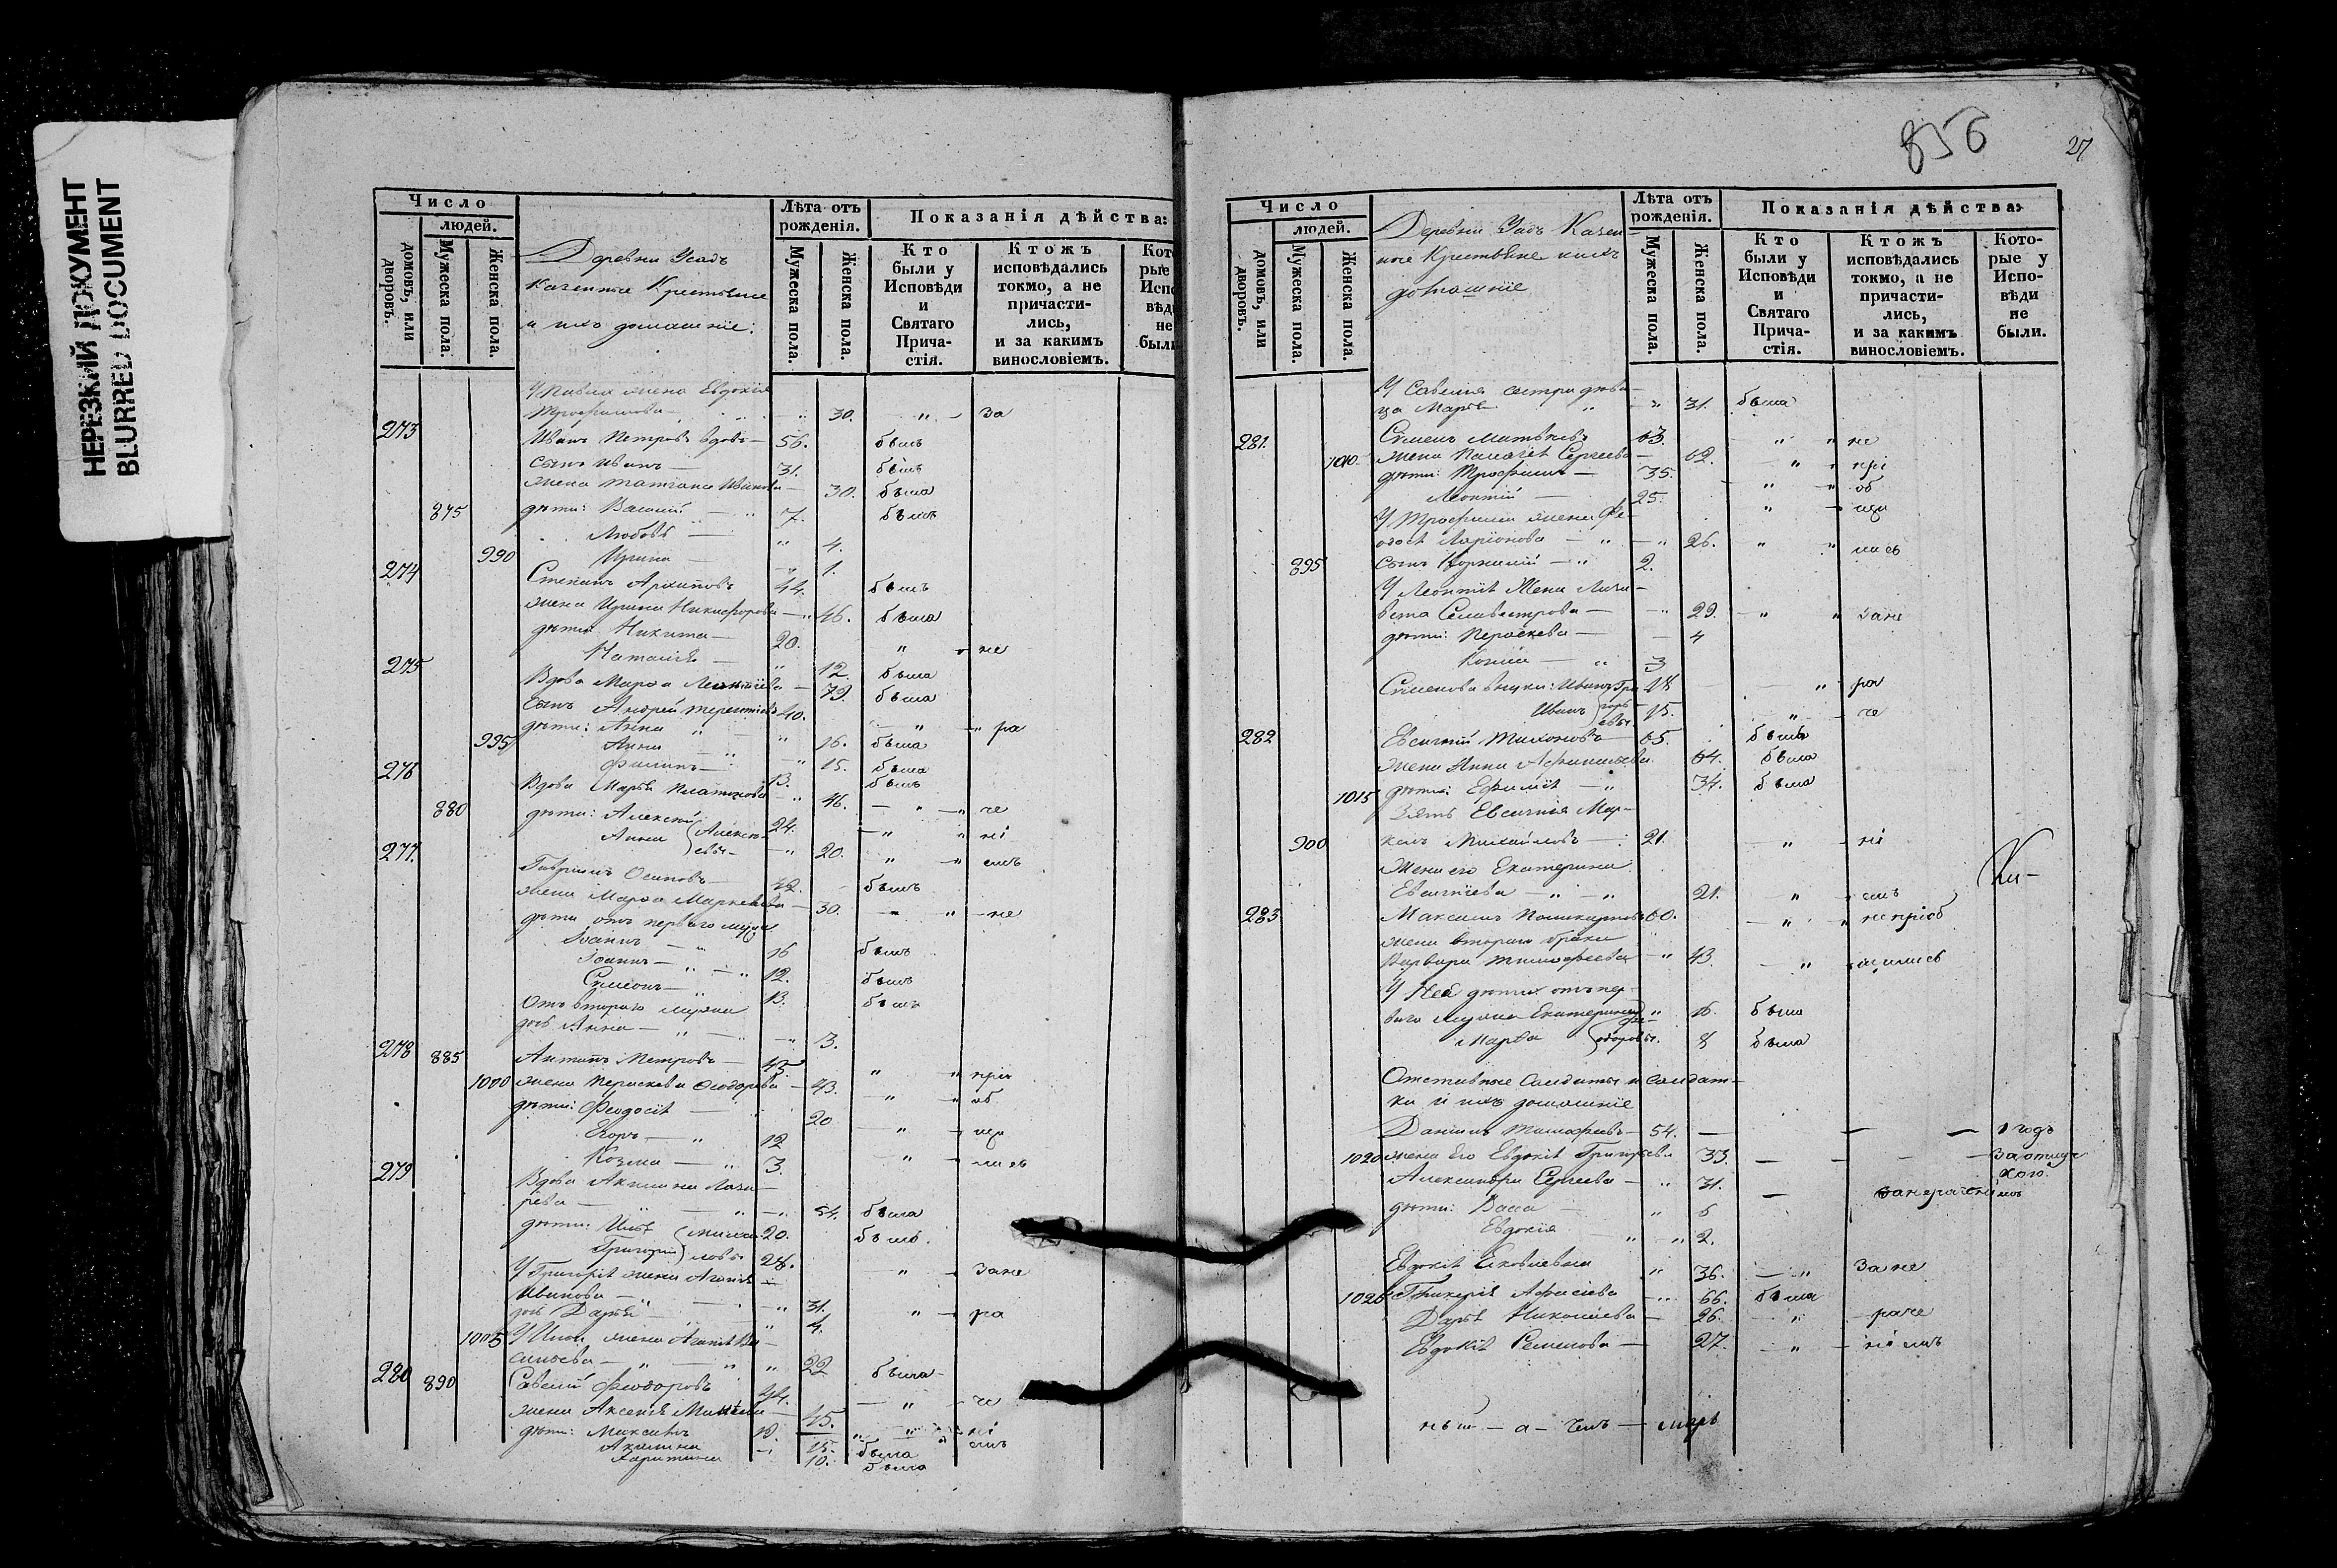 НЕРЕЗКИЙ ДОКУМЕНТ
BLURRED DOCUMENT
Число
людей.
домовъ, или дворовъ.
Мужеска пола.
Женска пола.
Деревни Усадъ
Казенные Крестьяне
и ихъ домашніе:
Лѣта отъ рожденія.
Мужеска пола.
Женска пола.
Показанія дѣйства:
Кто были у Исповѣди и Святаго Прича-стія.
Ктожъ исповѣдались токмо, а не причасти-лись, и за какимъ винословіемъ.
жена Евдокія
Трофимова 30. " За
273 Иванъ Петровъ вдовъ 56. былъ
сынъ Иванъ 31. былъ
жена Татіана Иванова 30. была
875 дѣти: Василій 7. былъ
Любовь " 4.
990 Ирина " 1.
274 Степанъ Архиповъ 44. былъ
жена Ирина Никифорова 46. была
дѣти: Никита 20. " не
Наталія " 12. была
275 Вдова Марѳа Леонтіева 79. была
сынъ Андрей Терентіевъ 40. " ра
дѣти: Анна " 16. была
995 Анна " 15. была
Филипъ 13. былъ
276 Вдова Марья Платонова 46. " че
880 дѣти: Алексѣй 24. " ні
Анна " 20. " емъ
277. Гавріилъ Осиповъ 42. былъ
жена Марѳа 30. " не
дѣти отъ перваго мужа
Іоаннъ 16 былъ
Іоаннъ 12. былъ
Симеонъ 13. былъ
Отъ втораго мужа
дочь Анна " 3.
278 885 Антипъ Петровъ 45 " прі
1000 жена Параскева Ѳеодорова 43. " об
дѣти: Ѳеодосія 20 " щи
Егоръ 12 " лись
Козма 3.
279 Вдова Акилина Лаза-
рева 54. была
дѣти: Илья 20. былъ
Григорій 28. " Зане
У Григорія жена Агапія
Иванова 31. " ра
дочь Дарья " 4.
1005 У Ильи жена Агапія Ва-
сильева " 22 была
280 890 Савелій Ѳеодоровъ 44. " че
жена Аксенія 45. " ні
дѣти: Максимъ 19. " емъ
Акилина 15. была
Харитина 10. была
856
27
Число
людей.
домовъ, или дворовъ.
Мужеска пола.
Женска пола.
Деревни Усадъ Казен-
ные Крестьяне и ихъ
домашніе
Лѣта отъ рожденія.
Мужеска пола.
Женска пола.
Показанія дѣйства:
Кто были у Исповѣди и Святаго Прича-стія.
Ктожъ исповѣдались токмо, а не причасти-лись, и за какимъ винословіемъ.
Кото-рые у Испо-вѣди не были.
У Савелія сестра дѣви-
ца Марья " 31. была
281. Симеонъ Матвѣевъ 63. " " не
1010 жена Пелагія Сергеева 62. " " прі
дѣти: Трофимъ 35. " " об
Леонтій 25. " щи
У Трофима жена Ѳе-
досія Ларіонова " 26. " " лись
895 сынъ Корнилій 2.
У Леонтія Жена Лиза-
вета Селиверстрова 29. " " Зане
дѣти: Параскева 4
Козма 3
Симеонова внуки: Иванъ Гри 18 " ра
Иванъ горьевы 15. " че
282 Евсигній Тихоновъ 65. былъ
жена Анна Афанасьева 64. была
1015 дѣти: Ефимія 34. была
Зять Евсигнія Мар-
900 келъ Михайловъ 21. " ні
Жена его Екатерина
Евсигніева 21. " емъ
Ки-
283 Максимъ Поликарповъ 60. " " не пріоб
жена втораго брака
Варвара Тимофеева " 43. " щились
У Ней дѣти отъ пер-
ваго мужа Екатерина " 16. была
Марѳа Ѳеодоровы. 8 была
Отставные Солдаты и солдат-
ки и ихъ домашніе
Даніилъ Тимофеевъ 54. 1 годъ
1020 жена Его Евдокія Григорьева 33. За отлуч
кою
Александра Сергеева " 31. за нераченіемъ
дѣти: Васса " 6
Евдокія " 2.
Евдокія Яковлевна " 36. " За не
1025 Гликерія 66. была
Дарья Николаева 26. " раче
Евдокія Семенова 27. " ніемъ